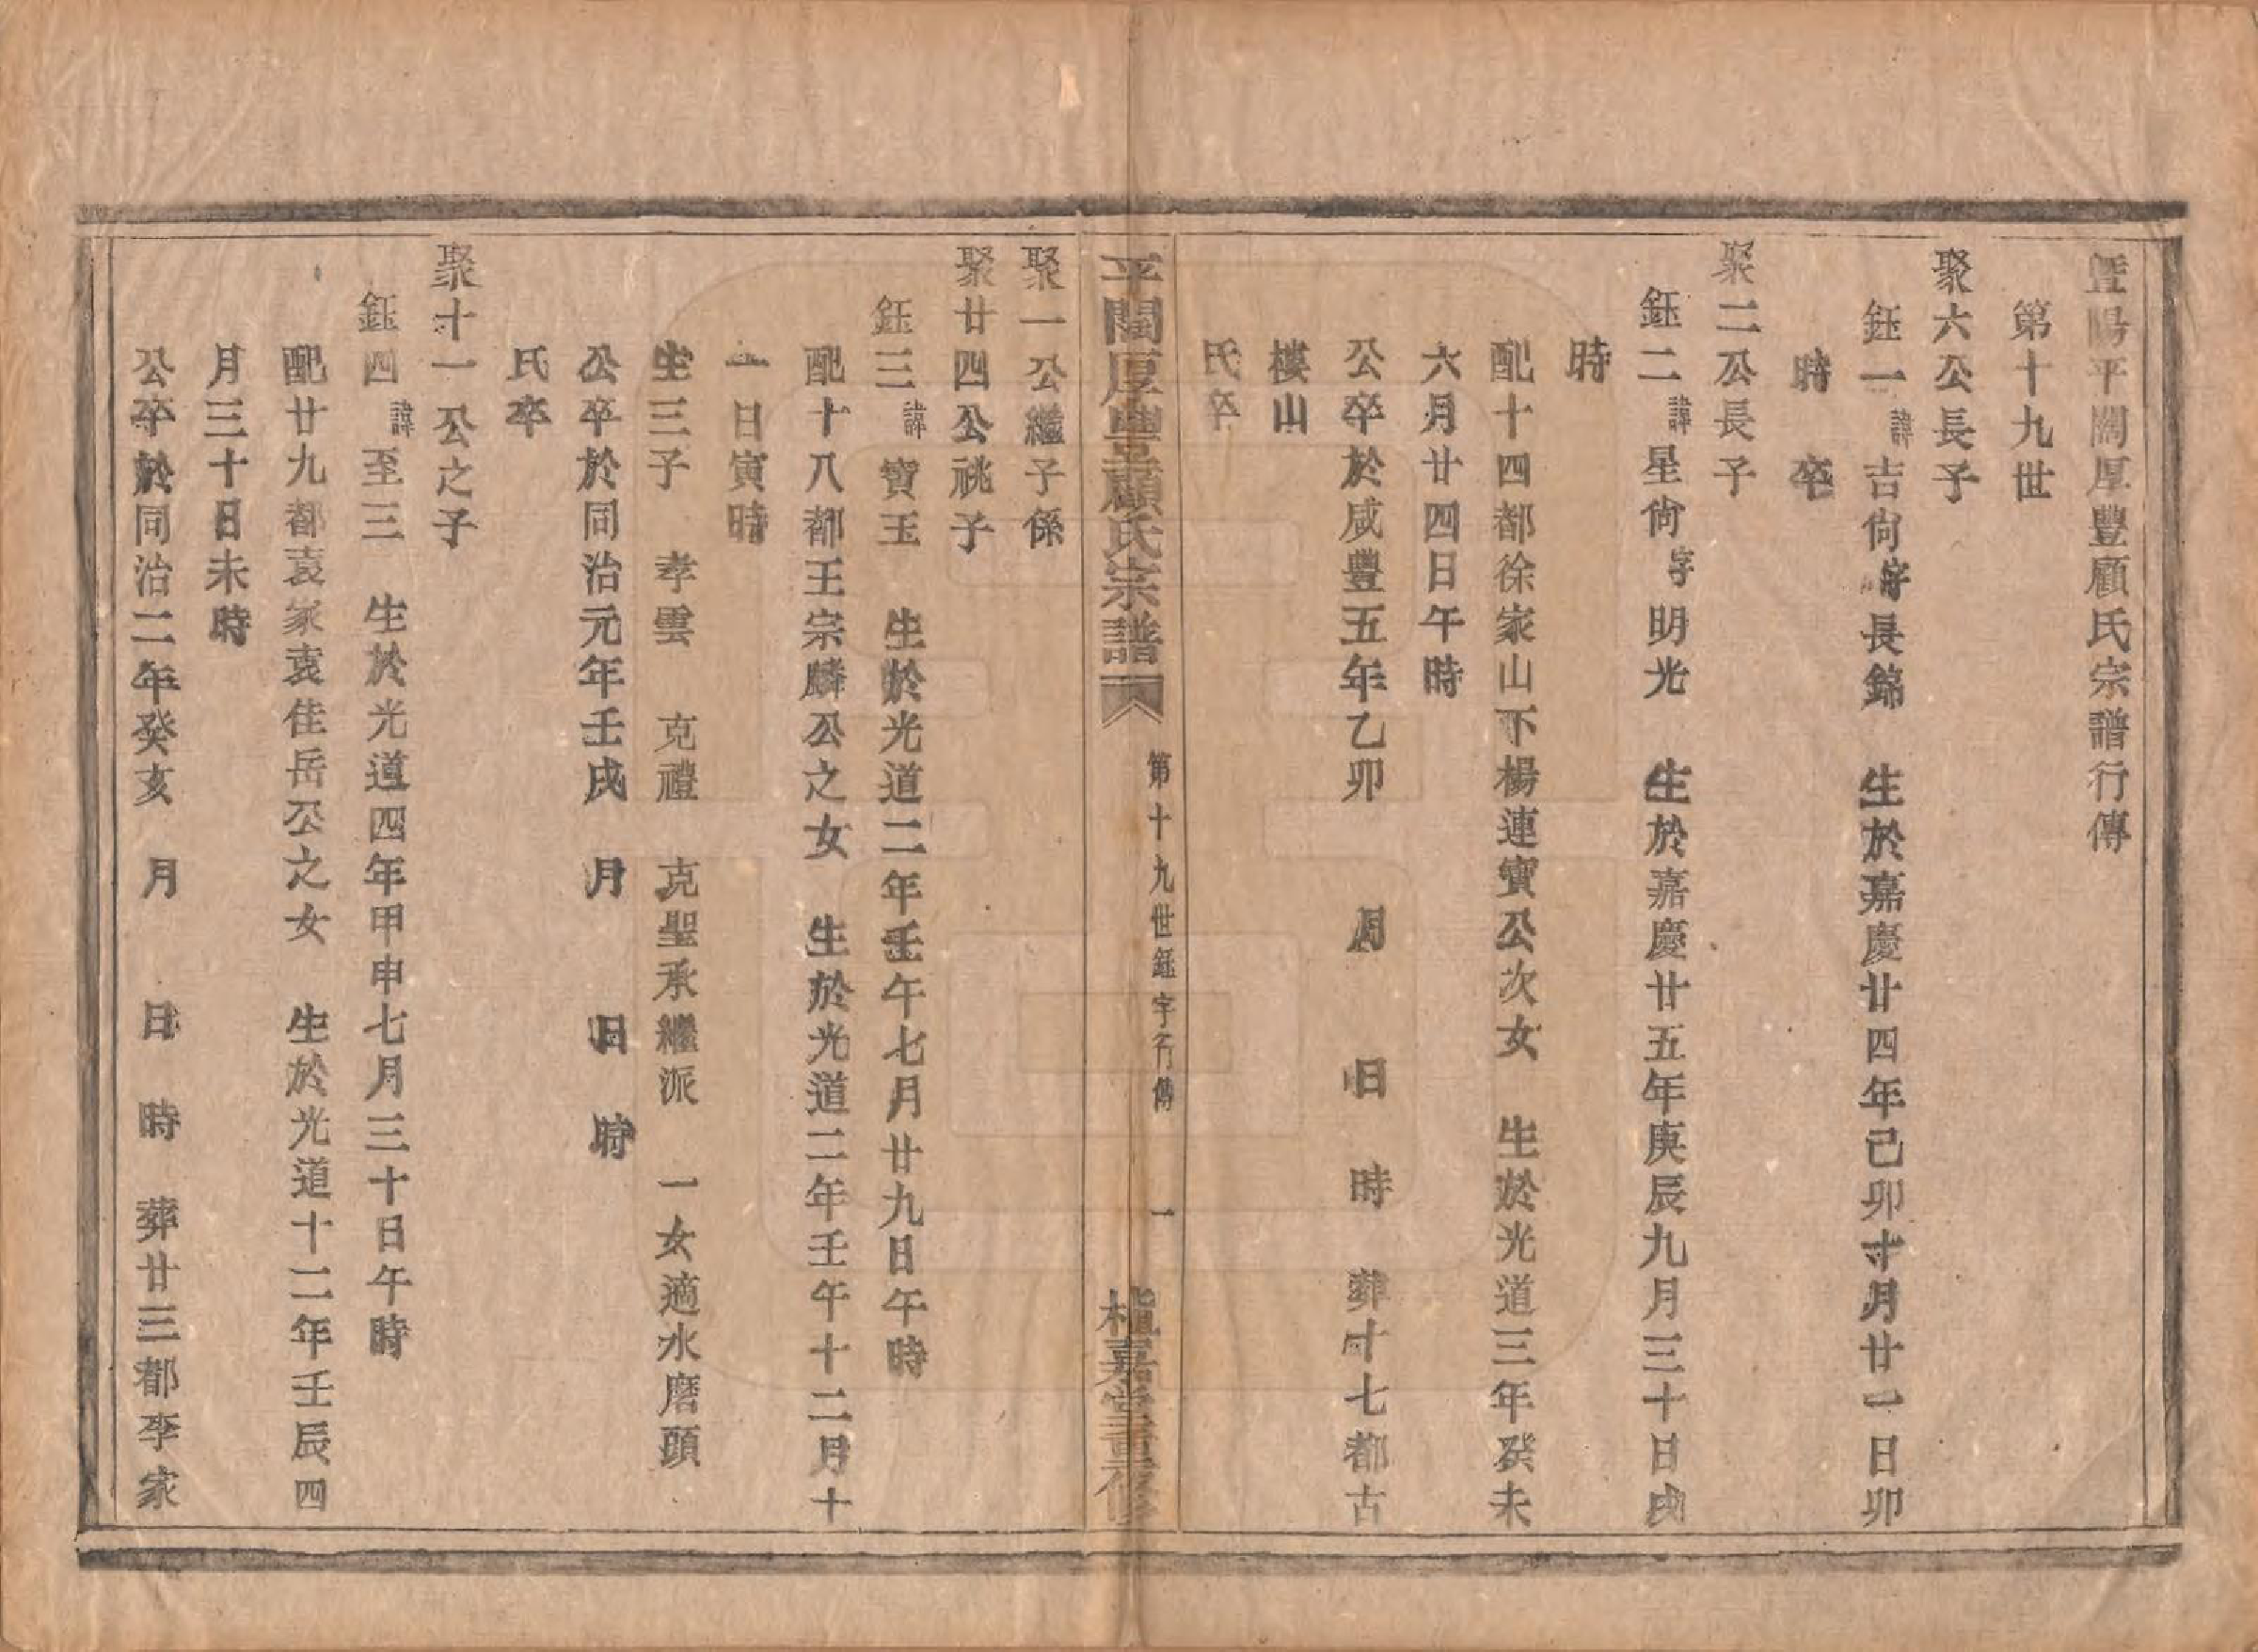 暨陽平闊厚豐顧氏宗譜行傳
第十九世
聚六公長子
鈺一 諱吉尙字長錦 生於嘉慶廿四年己卯十月廿一日卯
時 卒
聚二公長子
鈺二 諱星尙字明光 生於嘉慶廿五年庚辰九月三十日戌
時
配十四都徐家山下楊連寶公次女 生於光道三年癸未
六月廿四日午時
公卒於咸豐五年乙卯 月 日 時 葬十七都古
樓山
氏卒
平闊厚豐顧氏宗譜
第十九世鈺字行傳 一
植嘉堂重修
聚一公繼子係
聚廿四公祧子
鈺三 諱寶玉 生於光道二年壬午七月廿九日午時
配十八都王宗麟公之女 生於光道二年壬午十二月十
一日寅時
生三子 孝雲 克禮 克聖承繼派 一女適水磨頭
公卒於同治元年壬戌 月 日 時
氏卒
聚十一公之子
鈺四 諱至三 生於光道四年甲申七月三十日午時
配廿九都袁家袁佳岳公之女 生於光道十二年壬辰四
月三十日未時
公卒於同治二年癸亥 月 日 時 葬廿三都李家